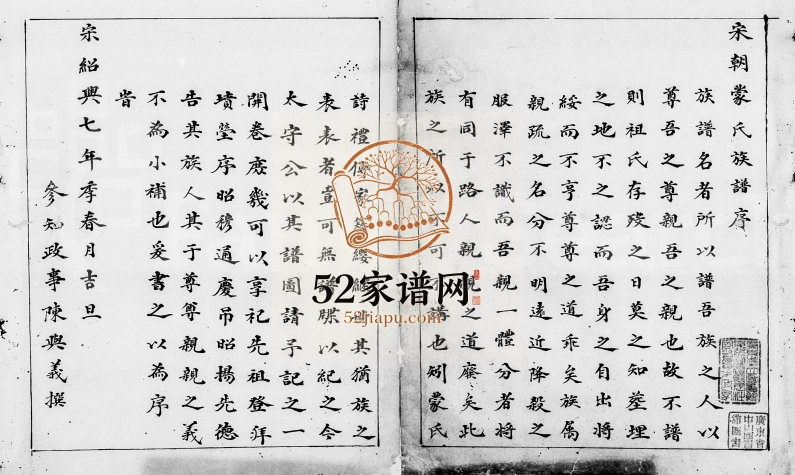 宋朝蒙氏族譜序
族譜名者所以譜吾族之人以
尊吾之尊親吾之親也故不譜
則祖氏存殁之日莫之知塟埋
之地不之認而吾身之自出將
綏而不享尊尊之道乖矣族属
親疏之名分不明遠近降殺之
服澤不識而吾親一體分者將
有同于路人親親之道廢矣此
族之所以不可不譜也矧蒙氏
詩禮傳家簪纓繼其猶族之
表表者豈可無譜牒以紀之今
太守公以其譜圖請予記之一
開卷庻幾可以享祀先祖登拜
墳塋序昭穆通慶吊昭揚先德
告其族人其于尊尊親親之義
不為小補也爰書之以為序
旹
宗紹興七年季春月吉旦
參知政事陳與義撰
52家谱网
52jiapu.com
廣東省
中山圖
書館